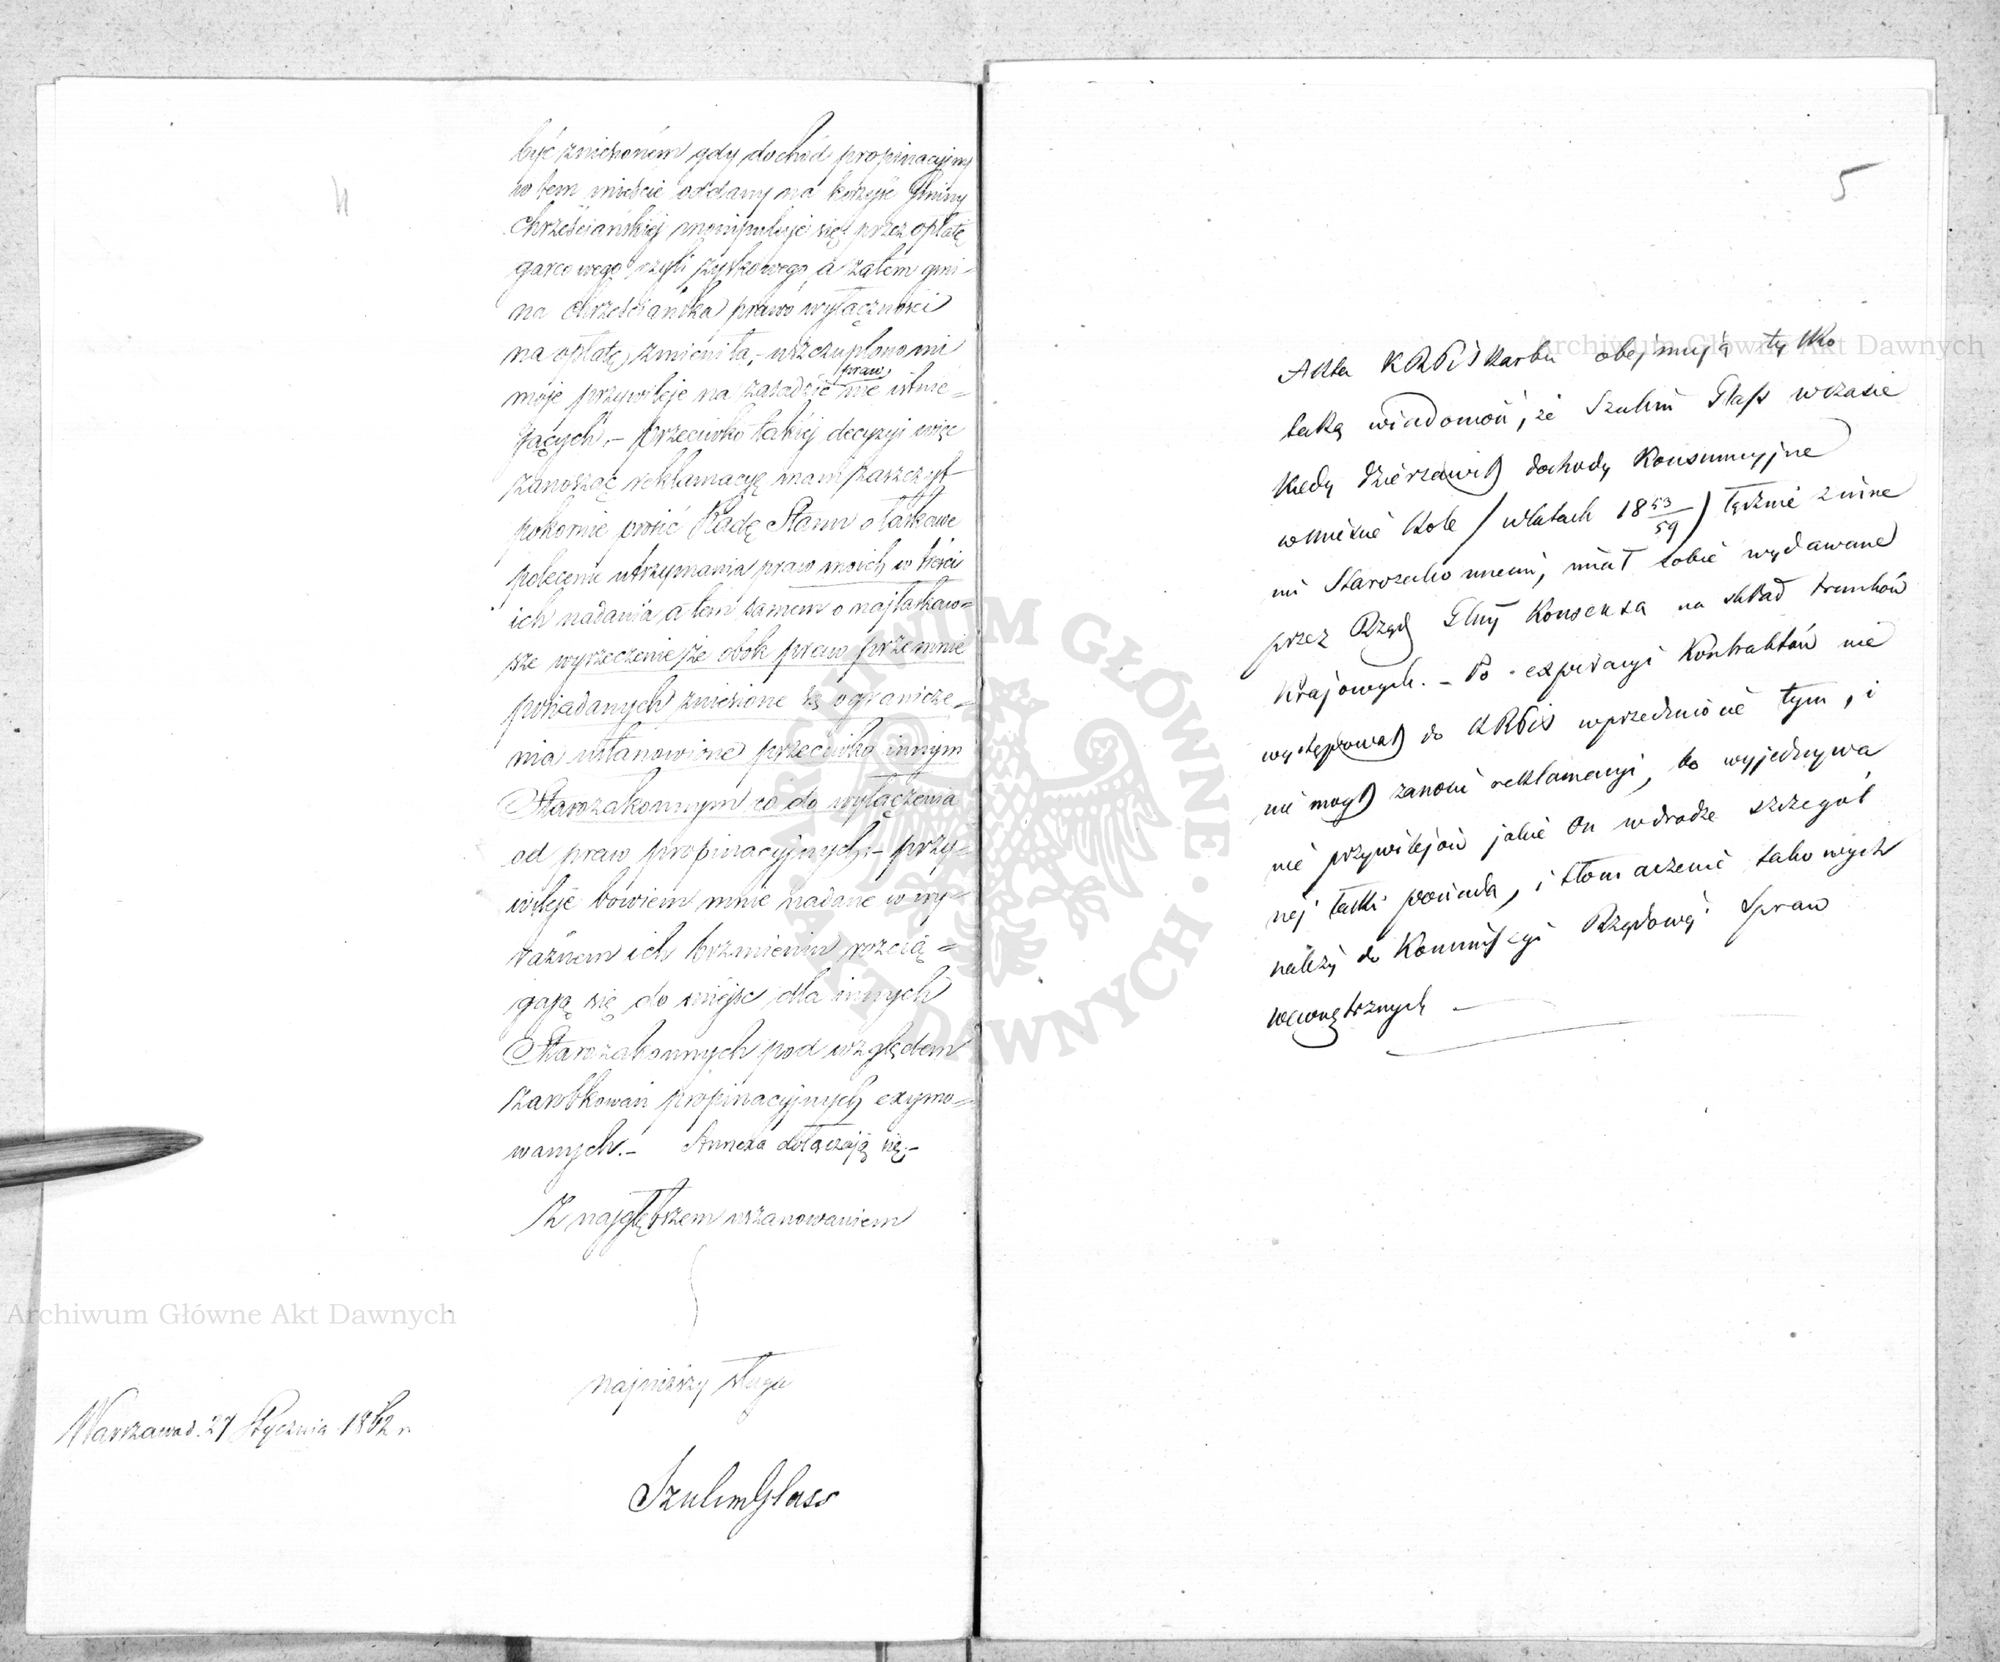 4
być zniesioném gdy dochód propinacyjny
w tem mieście oddany na korzyść Gminy
Chrześciańskiéj manipuluje się przez opłatę
garcowego czyli szynkowego, a zatém gmi-
na chrześciańska prawo wyłączności
na opłatę zmieniła, - uszczuplono mi
moje przywileje na zasadzie praw nie istnie-
jących. - Przeciwko takiéj decyzyi więc
zanosząc reklamacyę mam zaszczyt
pokornie prosić Radę Stanu o łaskawe
polecenie utrzymania praw moich w treści
ich nadania, a tem samem o najłaskaw=
sze wyrzeczenie że obok praw przezemnie
posiadanych zniesione są ogranicze=
nia ustanowione przeciwko innym
Starozakonnym co do wyłączenia
od praw propinacyjnych, - przy=
wileje bowiem mnie nadane w wy=
raźnem ich brzmieniu rozcią=
gają się do miejsc dla innych
Starozakonnych pod względem
zarobkowań propinacyjnych exymo=
wanych. - Annexa dołączają się. -
Z najgłębszem uszanowaniem
najniższy sługa
Warszawa d. 27 Stycznia 1862 r.
Szulim Glass
5
Akta KRPiSkarbu obejmują tylko
taką wiadomość, że Szulim Glass w czasie
kiedy dzierżawił dochody Konsumcyjne
w mieście Kole / w latach 1853/59 / łącznie z inne
mi Starozakonnemi, miał sobie wydawane
przez Rząd Glny Konsensa na skład trunków
Krajowych. - Po exspiracyi Kontraktów nie
występował do KRPiS w przedmiocie tym, i
nie mógł zanosić reklamacyi, bo wyjednywa
nie przywilejów jakie On w drodze szczegól
nej łaski posiada, i tłomaczenie takowych
należy do Kommissyi Rządowéj Spraw
wewnętrznych
Archiwum Główne Akt Dawnych
Archiwum Główne Akt Dawnych
ARCHIWUM GŁÓWNE AKT DAWNYCH